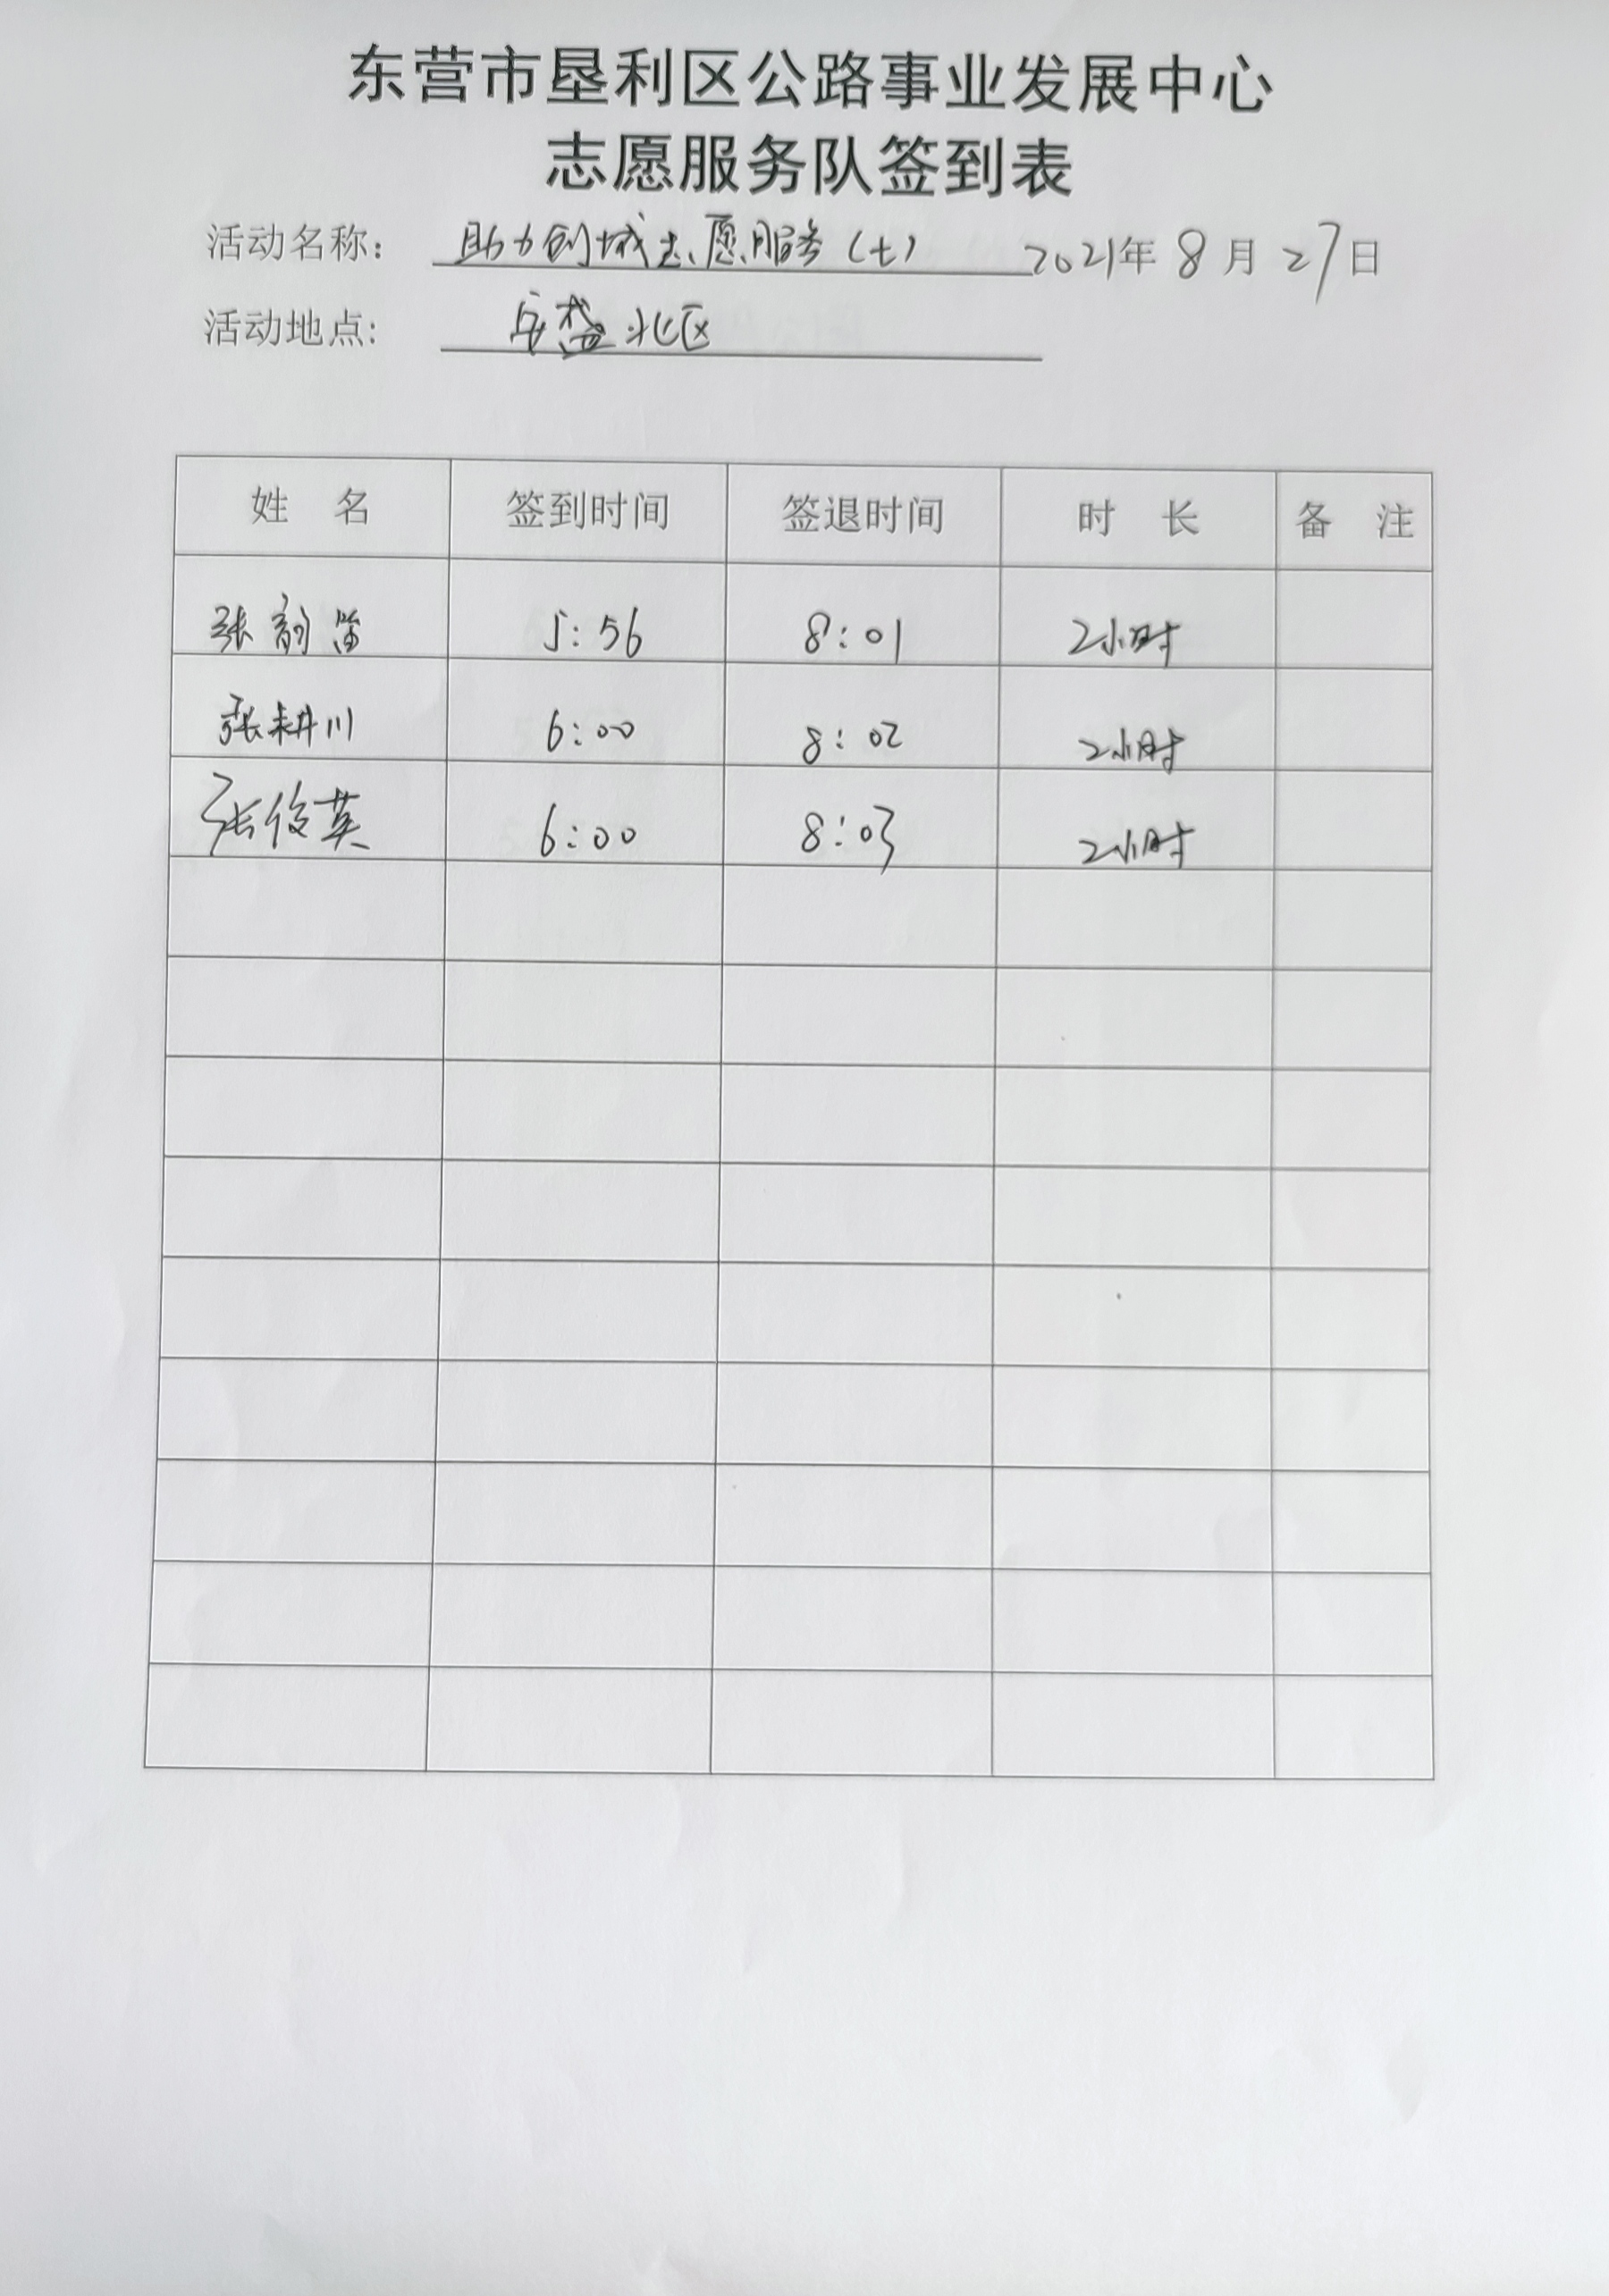 东营市垦利区公路事业发展中心
志愿服务队签到表
活动名称： 助力创城志愿服务（七） 2021年 8月 27日
活动地点: 盛北区
姓 名 签到时间 签退时间 时 长 备 注
张韵笛 5:56 8:01 2小时
张耕川 6:00 8:02 2小时
张俊英 6:00 8:03 2小时